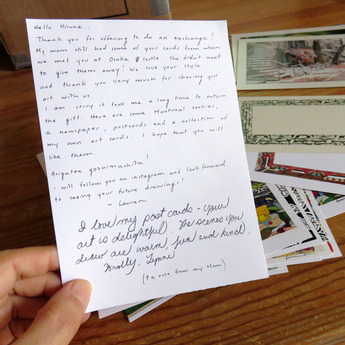 Hello Hirune.
Thank you for offering to do an exchange!
My mom still had some of your cards from when
we met you at Osaka Castle. She didn't want
to give them away. We love your style
and thank you very much for sharing your
art with us.
I am sorry it took me a long time to return
the gift. Here are some Montreal cookies,
a newspaper, postcards and a collection of
my own art cards. I hope that you will
like them
Arigatou gozaimashita!
I will follow you on instagram and look forward
to seeing your future drawings!
- Lauren
I love my post cards - your
art is delightful. The scenes you
draw are warm, fun and kind.
(↑ a note from my Mom)